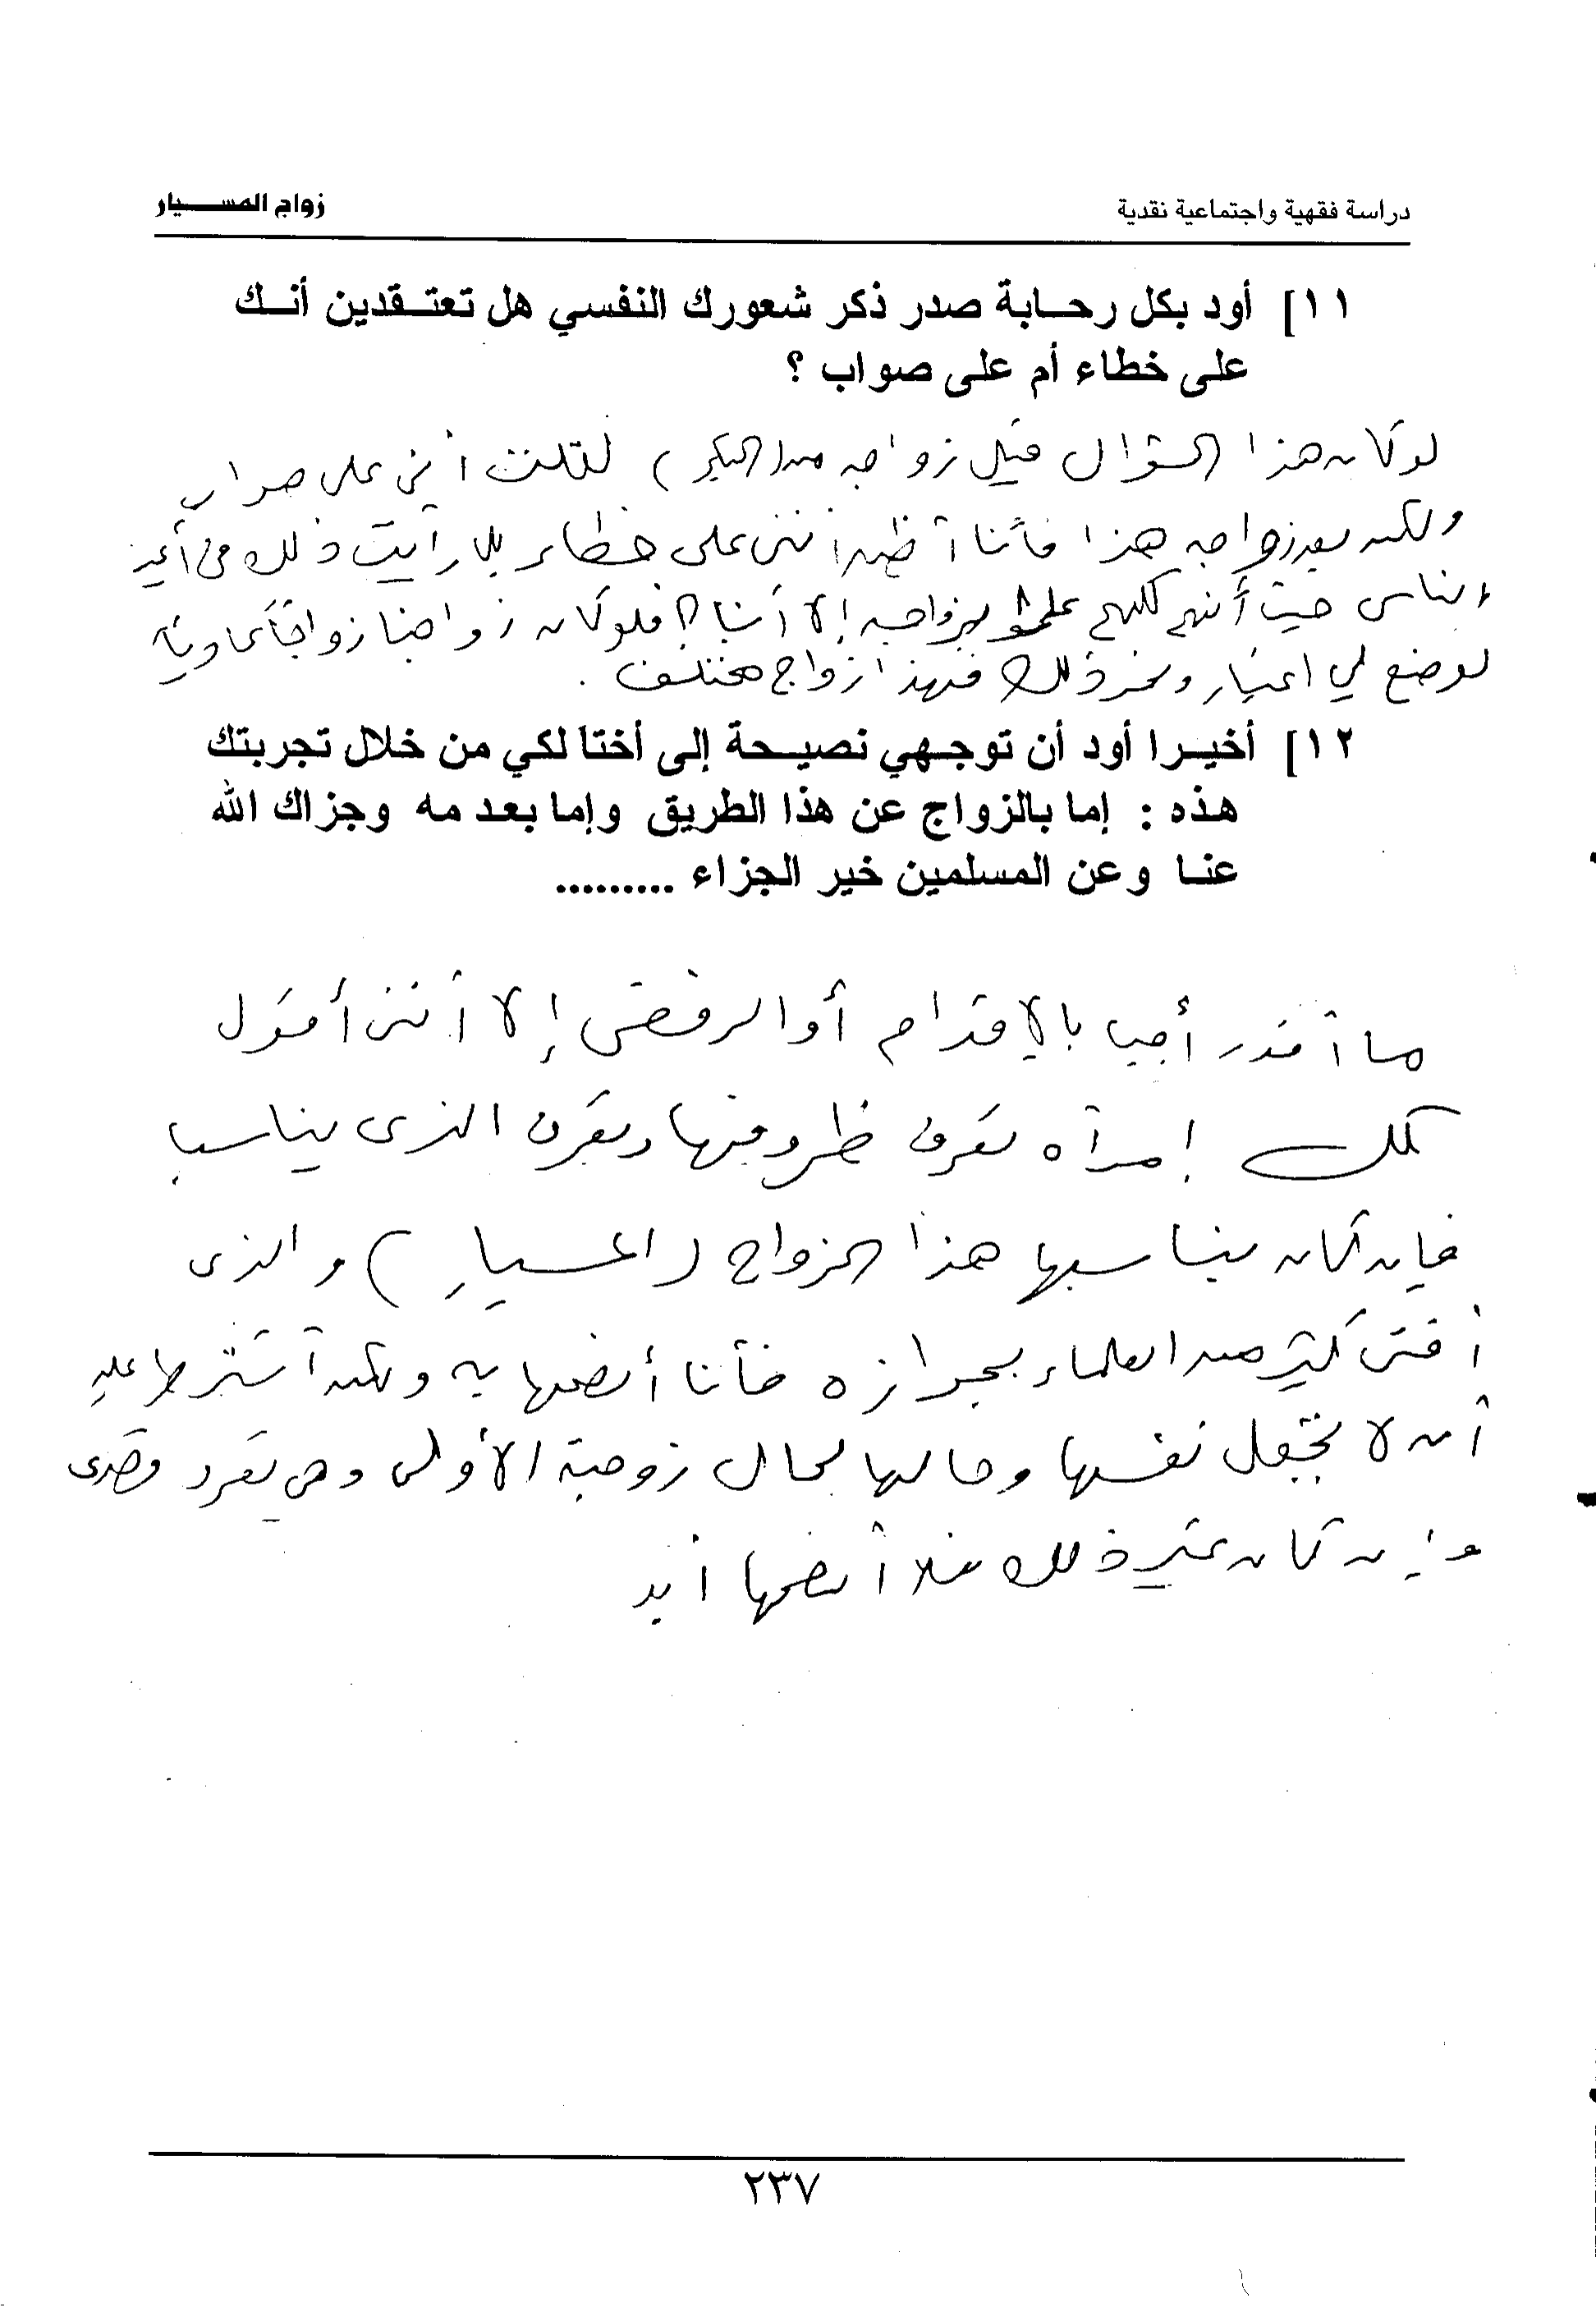 دراسة فقهية واجتماعية نقدية
زواج المسيار
١١] أود بكل رحابة صدر ذكر شعورك النفسي هل تعتقدين أنك
على خطاء أم على صواب ؟
لو كان هذا السؤال قبل زواجه من (البكر) لقلت أني على صواب
ولكن بعد زواجه هذا فأنا أظن أنني على خطاء بل رأيت ذلك في أعين
الناس حيث أنهم كلهم علموا بزواجه إلا أنا فلو كان زواجنا زواجاً عادياً
لوضع لي اعتبار ونحو ذلك فهذا زواج مختلف .
١٢] أخيرا أود أن توجهي نصيحة إلى أختا لكي من خلال تجربتك
هذه : إما بالزواج عن هذا الطريق وإما بعد مه وجزاك الله
عنا وعن المسلمين خير الجزاء .........
ما أقدر أجيب بالإقدام أو الرفض إلا أنني أقول
كل إمرأه تعرف ظروفها وتعرف الذي يناسبها
فإن كان يناسبها هذا الزواج (المسيار) والذي
أفتى كثير من العلماء بجوازه فأنا أنصحها به ولكن أشترط عليه
أن لا تجعل نفسها وحالها لحال زوجة الأولى وهي تعرف قصدي
وإن كان غير ذلك فلا أنصحها أبد
٢٣٧